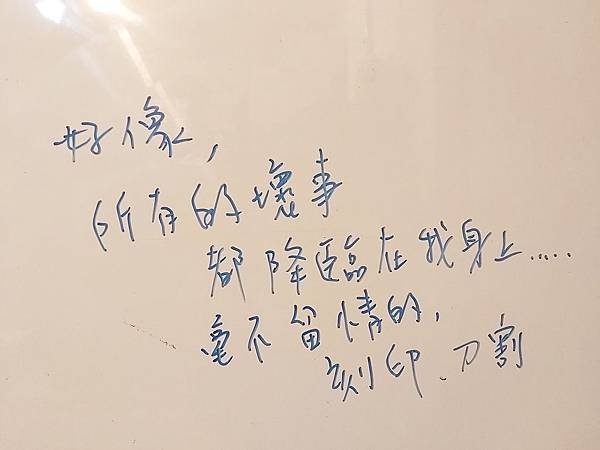 好像，
所有的壞事
都降臨在我身上.....
毫不留情的，
刻印、刀割